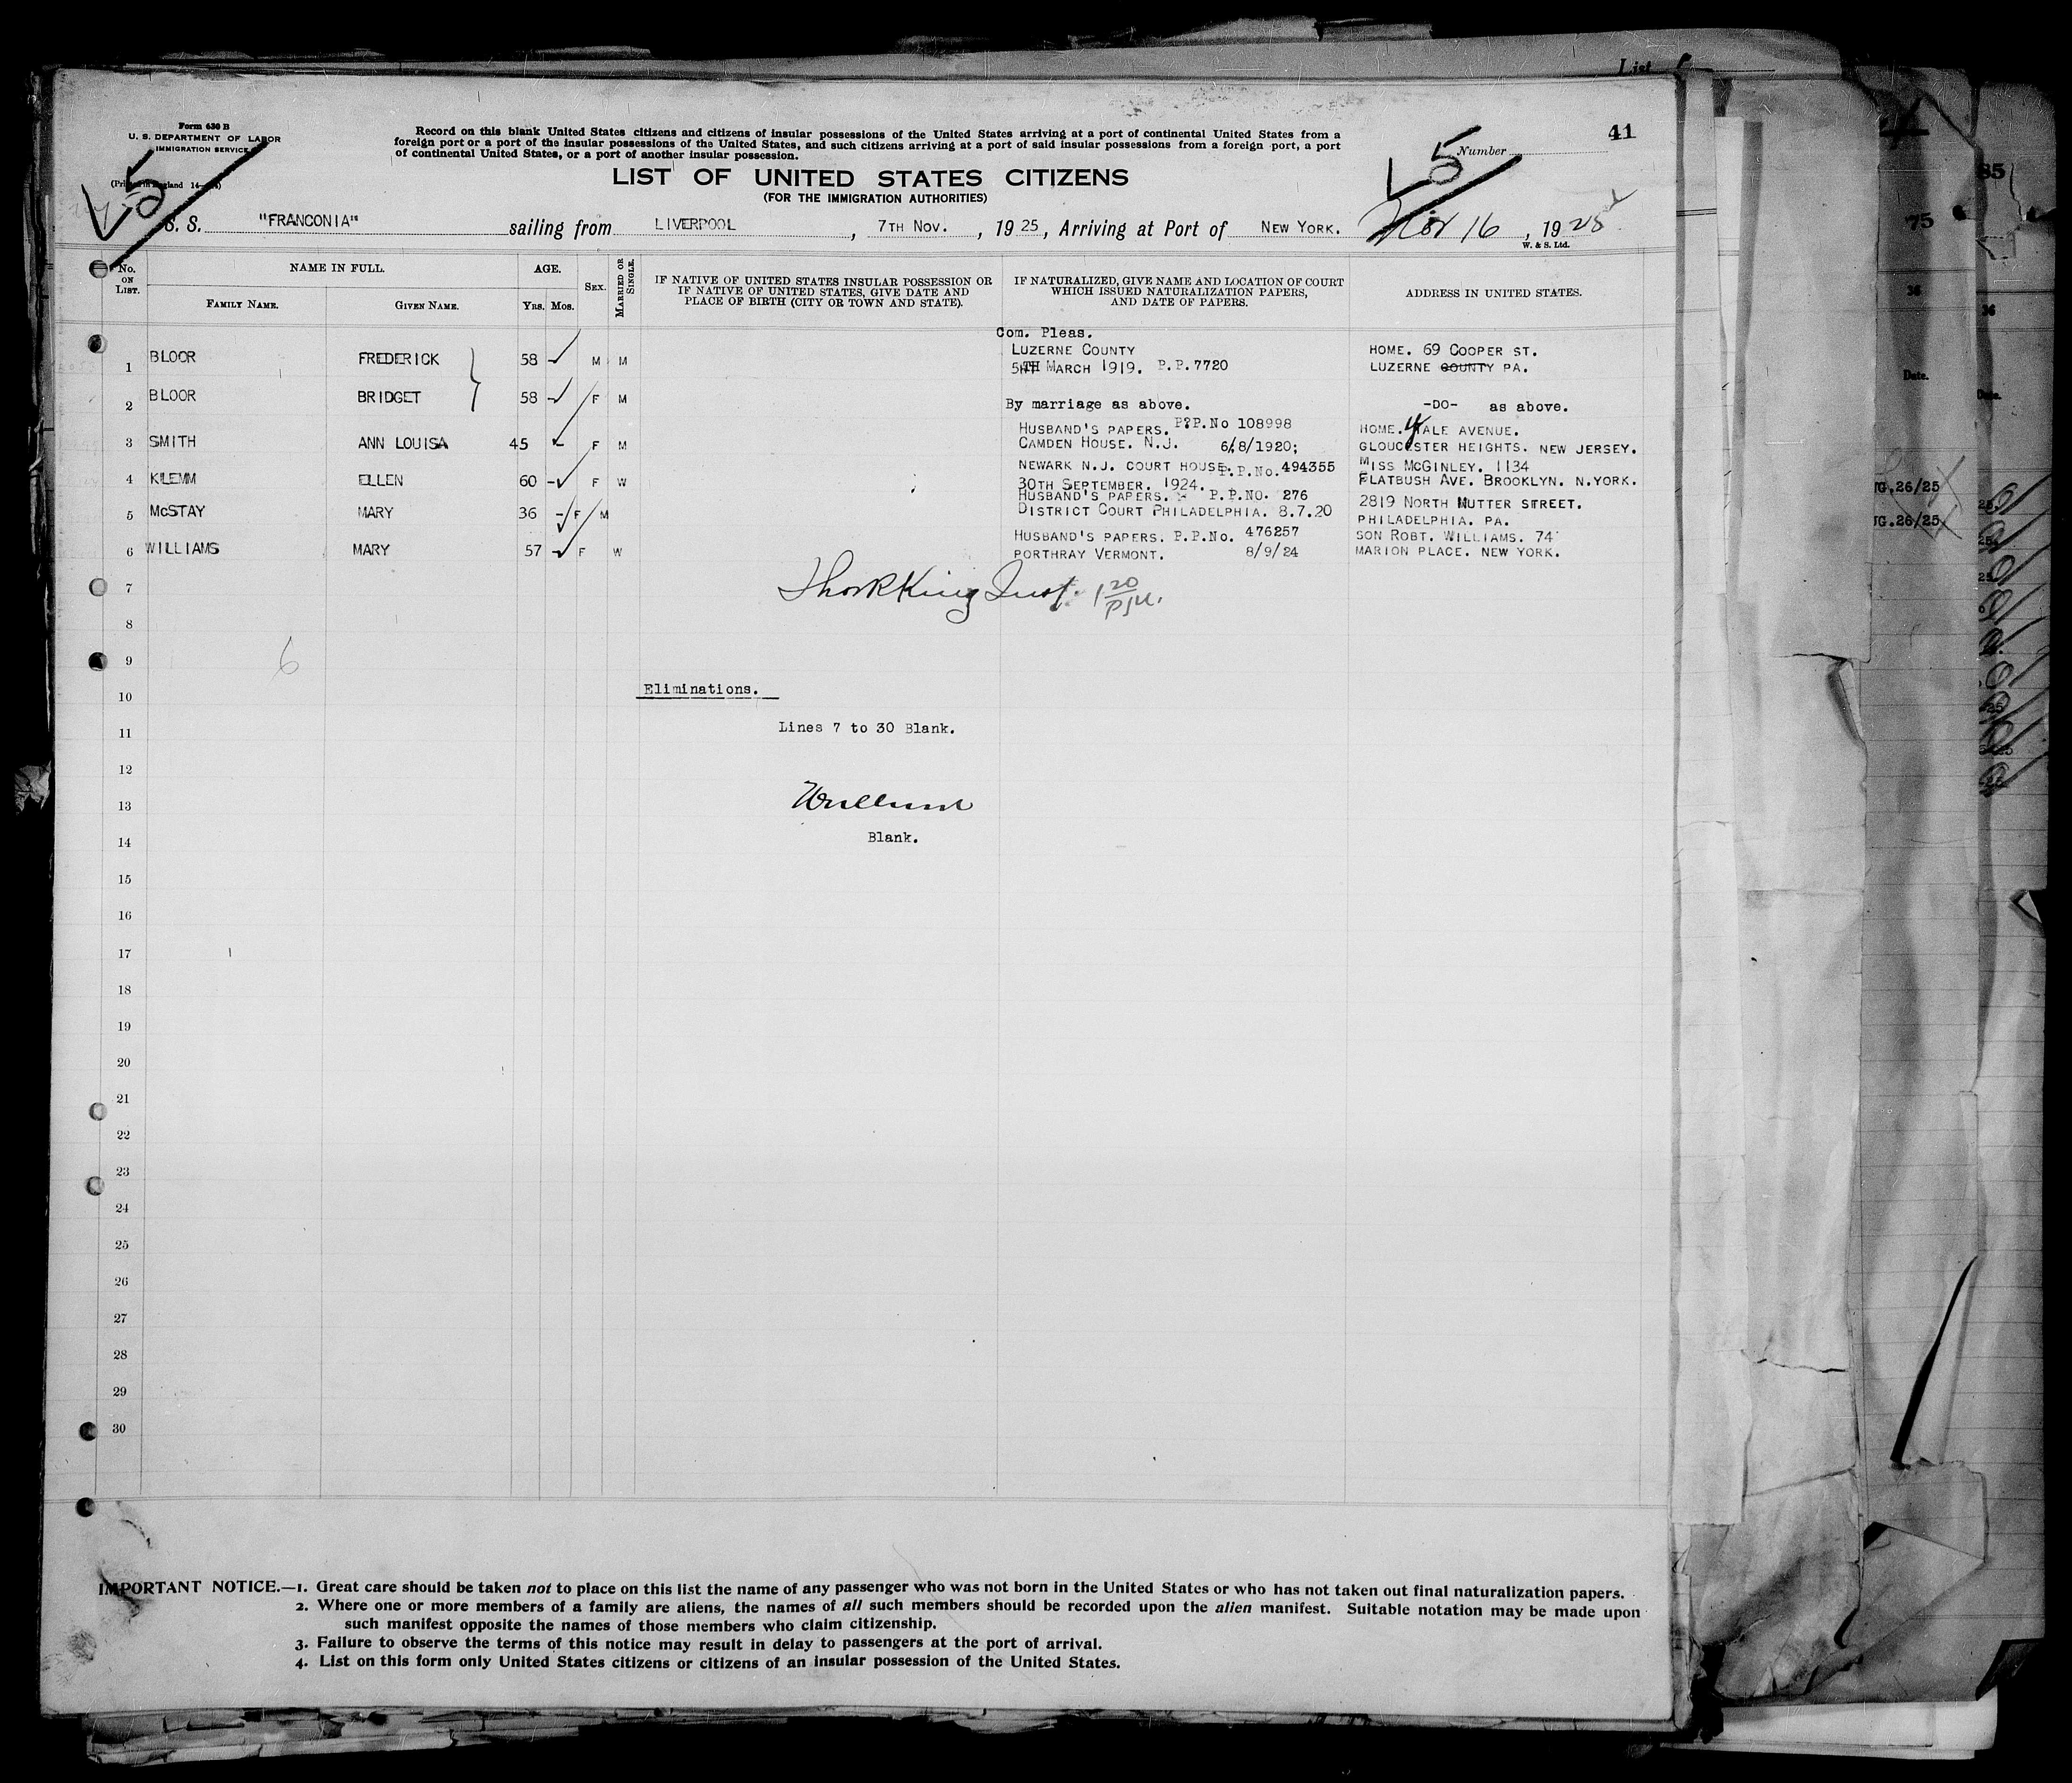 List
Form 630 B
U. S. DEPARTMENT OF LABOR
IMMIGRATION SERVICE
Record on this blank United States citizens and citizens of insular possessions of the United States arriving at a port of continental United States from a
foreign port or a port of the insular possessions of the United States, and such citizens arriving at a port of said insular possessions from a foreign port, a port
of continental United States, or a port of another insular possession.
5
5
Number
41
LIST OF UNITED STATES CITIZENS
(FOR THE IMMIGRATION AUTHORITIES)
S. S. "FRANCONIA" sailing from LIVERPOOL, 7TH NOV., 1925, Arriving at Port of NEW YORK. Nov 16, 1925
W. & S. Ltd.
No. ON LIST.
NAME IN FULL.
FAMILY NAME.
GIVEN NAME.
AGE.
YRS. MOS.
SEX.
MARRIED OR SINGLE.
IF NATIVE OF UNITED STATES INSULAR POSSESSION OR
IF NATIVE OF UNITED STATES, GIVE DATE AND
PLACE OF BIRTH (CITY OR TOWN AND STATE).
IF NATURALIZED, GIVE NAME AND LOCATION OF COURT
WHICH ISSUED NATURALIZATION PAPERS,
AND DATE OF PAPERS.
ADDRESS IN UNITED STATES.
Com. Pleas.
1 BLOOR FREDERICK 58 M M LUZERNE COUNTY HOME. 69 COOPER ST.
5TH MARCH 1919. P.P.7720 LUZERNE COUNTY PA.
2 BLOOR BRIDGET 58 F M By marriage as above. -DO- as above.
3 SMITH ANN LOUISA 45 F M HUSBAND'S PAPERS. P?P.No 108998 HOME. YALE AVENUE.
CAMDEN HOUSE. N.J. 6/8/1920; GLOUCESTER HEIGHTS. NEW JERSEY.
4 KLEMM ELLEN 60 F W NEWARK N.J. COURT HOUSE. P.P.No. 494355 MISS MCGINLEY. 1134
30TH SEPTEMBER. 1924. FLATBUSH AVE. BROOKLYN. N.YORK.
5 McSTAY MARY 36 F M HUSBAND'S PAPERS. P.P.NO. 276 2819 NORTH MUTTER STREET.
DISTRICT COURT PHILADELPHIA. 8.7.20 PHILADELPHIA. PA.
6 WILLIAMS MARY 57 F W HUSBAND'S PAPERS. P.P.No. 476257 SON ROBT. WILLIAMS. 74
PORTHRAY VERMONT. 8/9/24 MARION PLACE. NEW YORK.
7
8
9
6
10 Eliminations.
11 Lines 7 to 30 Blank.
12
13
14 Blank.
15
16
17
18
19
20
21
22
23
24
25
26
27
28
29
30
IMPORTANT NOTICE.—1. Great care should be taken not to place on this list the name of any passenger who was not born in the United States or who has not taken out final naturalization papers.
2. Where one or more members of a family are aliens, the names of all such members should be recorded upon the alien manifest. Suitable notation may be made upon
such manifest opposite the names of those members who claim citizenship.
3. Failure to observe the terms of this notice may result in delay to passengers at the port of arrival.
4. List on this form only United States citizens or citizens of an insular possession of the United States.
75
36
Date.
26/25
26/25